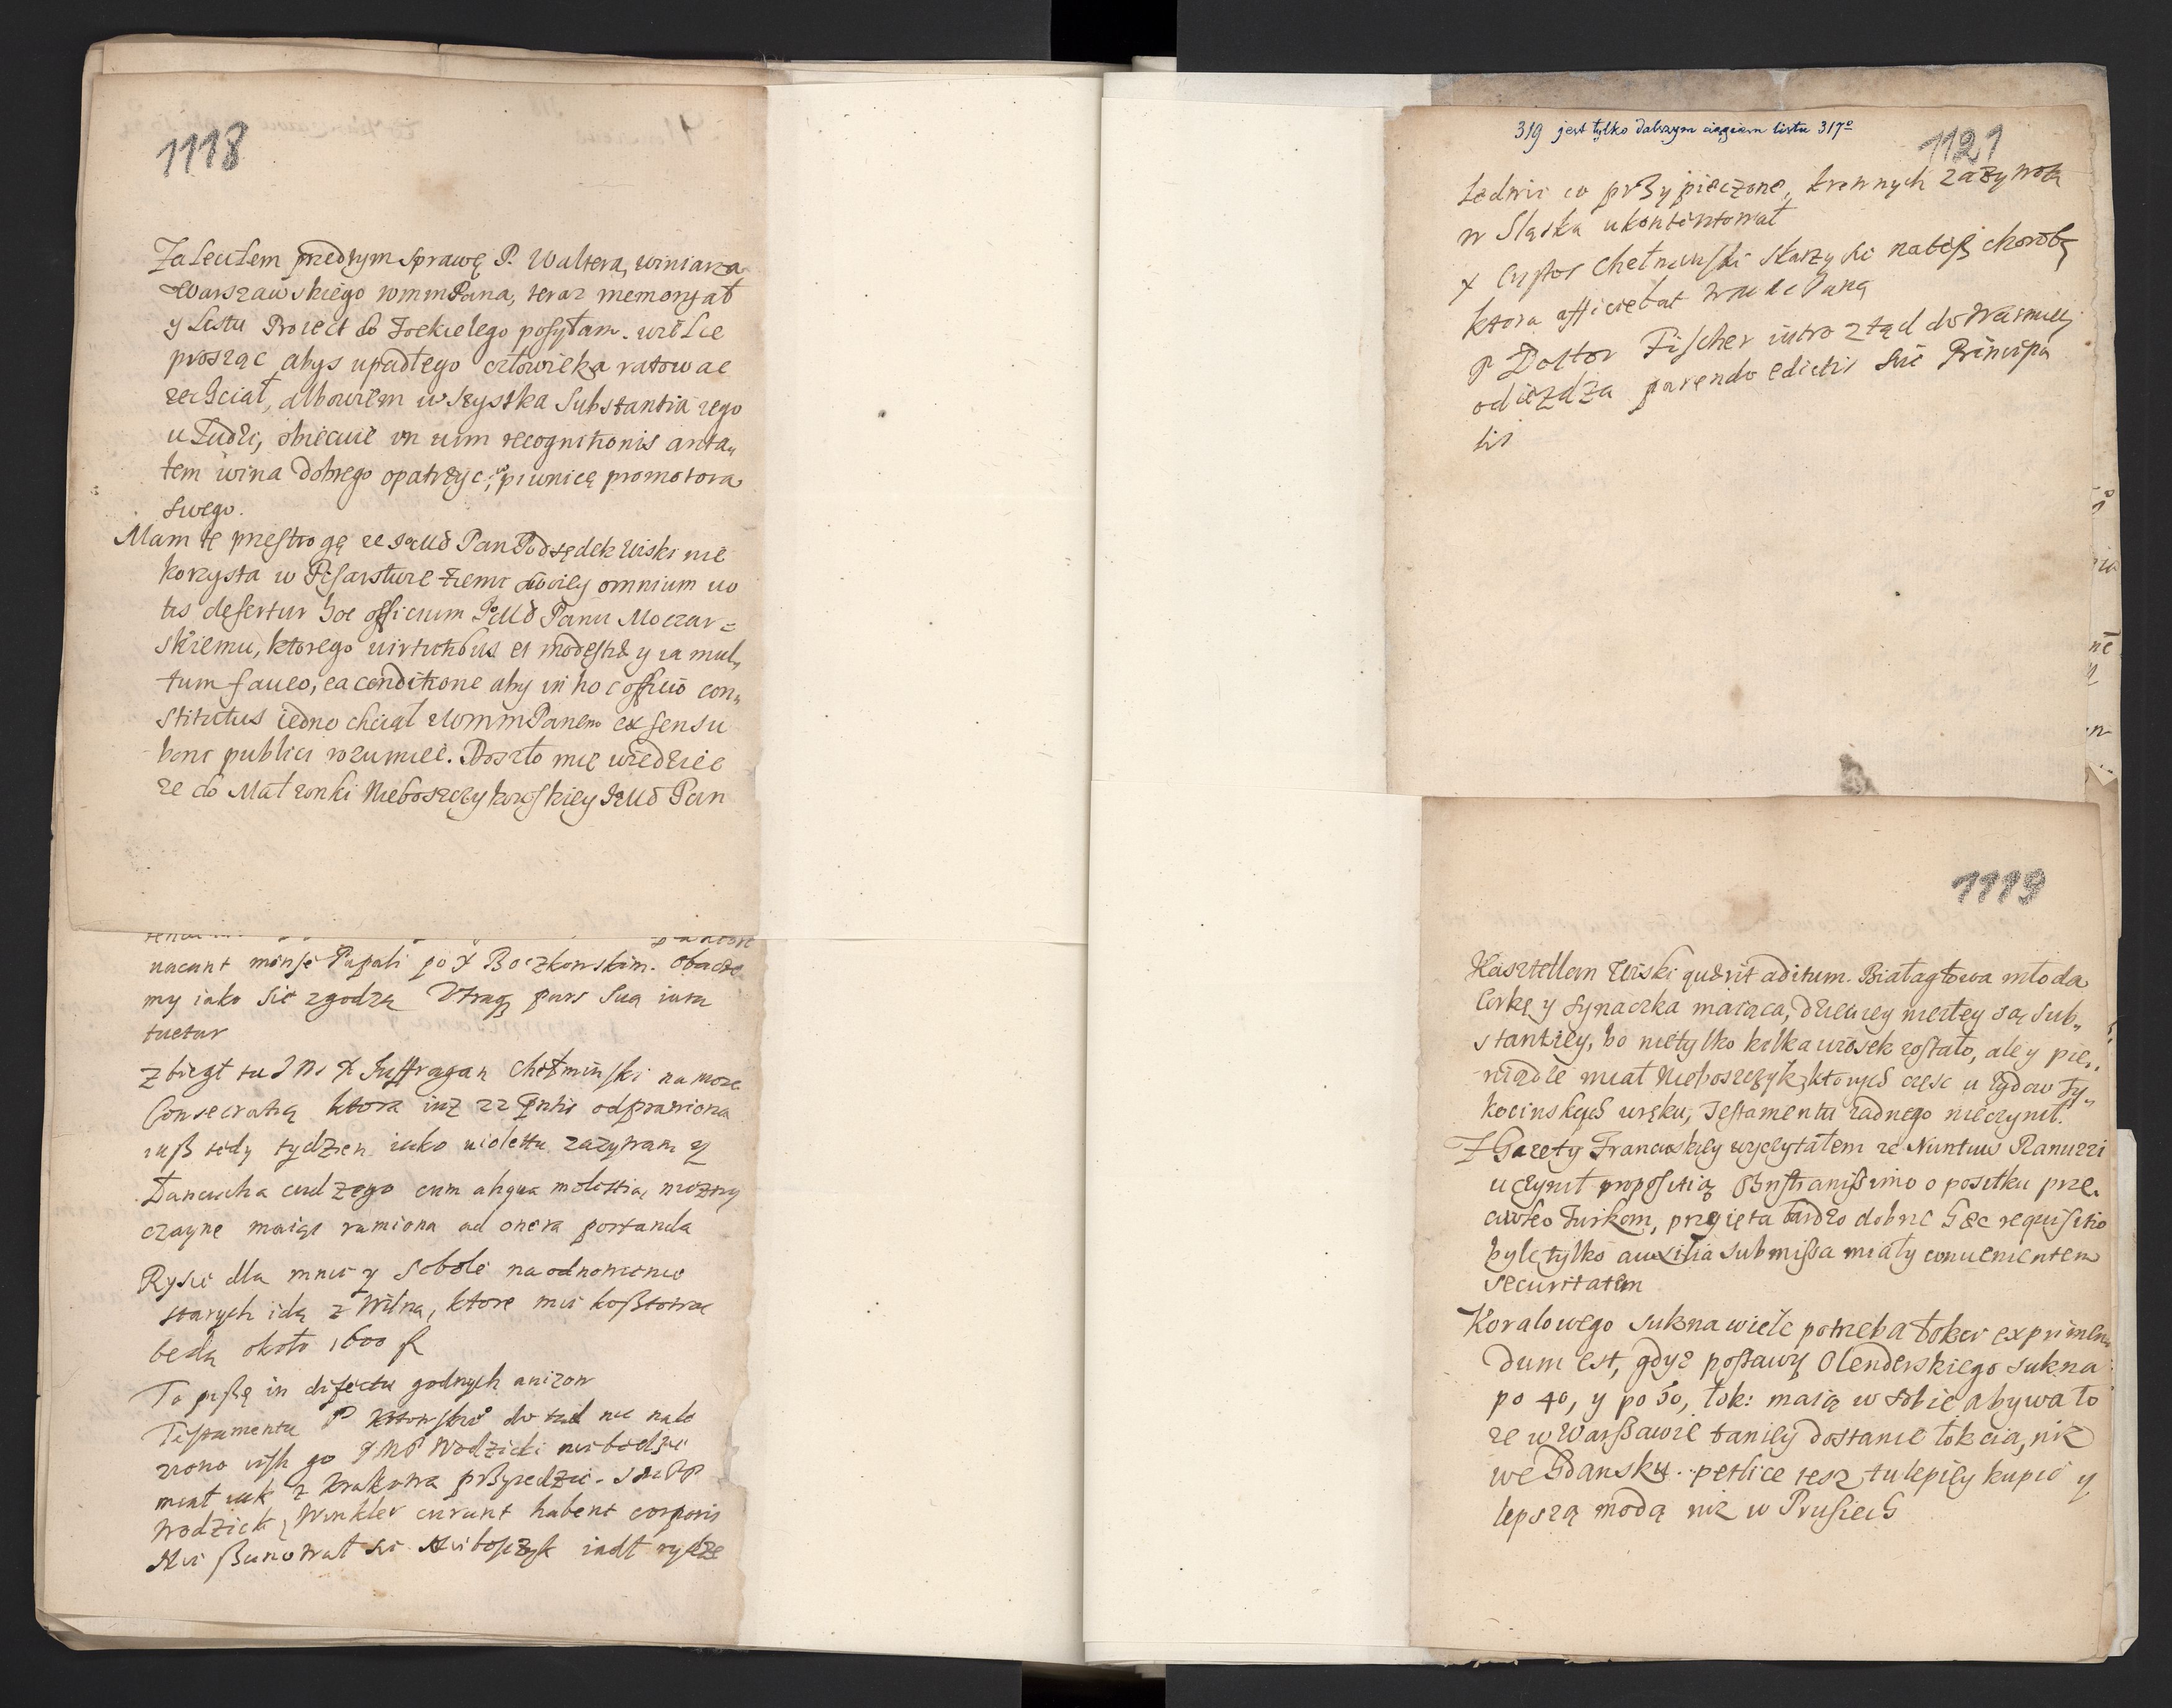 1118
Zaleciłem przed tym sprawę P. Waltera, winiarza
Warszawskiego wmmPana, teraz memoryał
y Listu Proiect do Jockielego posyłam. wielce
prosząc abys upadłego człowieka ratowac
zechciał, albowiem wszystka Substantia iego
u Ludzi, obiecuie in uim recognitionis anta„
łem wina dobrego opatrzyc piwnicę promotora
swego.
Mam tę przestrogę ze Pan Podsędek Wiski nie
korzysta w Pisarstwie Ziemi omnium uo
tis defertur hoc officium Panu Moczar=
skiemu, ktorego uirtutibus et modestiæ y ia mul„
tum faueo, ea conditione aby in hoc officio con„
stitutus iedno chciał zWmmPanem ex sensu
boni publici rozumiec. Doszło mie wiedziec
ze do Małzonki Pan
uacant mensæ Papali po X Boczkowskim. Obacze
my iako sie zgodzą Utraq pars sua iura
tuetur
zbiegł tu X Suffragan Chełminski na moze
Consecratią ktora iuz 22 odprawiona
iuß tedy tydzien iako violettu zazywam y
Łancucha cudzego cum aliqua molestia, nie
maiąc ramiona ad onera portanda
Rysie dla mnie y Sobole na odnowienie
starych idą z Wilna, ktore mie koßtowac
będą około 1600 f
To pißę in defectu godnych awizow
Testamentu P do tąd nie nale
ziono Wodzicki nie będzie
miał iak z Krakowa prßyiedzie.
Wodzicki, Winkler curant habent corporis
Nie ßanował sie Nieboszczyk iadł rydze
319 jest tylko dalszym ciągiem listu 317º
1121
Ledwie co prßypieczone, krewnych zazywotą
w Sląsku ukontentował
X Custos Chełminski
ktora afficiebat
P Doktor Fischer iutro ztąd do Warmiey
odiezdza parendo edictis sui Principa
lis
1119
Kasztellan Wiski quærit aditum. Białagłowa młoda
Corkę y synaczka maiąca, sub„
stantiey, bo nietylko kilka wiosek zostało, ale y pie„
niądze miał Nieboszczyk, ktorych częsc u Zydow Ty„
kocinskych wręku, Testamentu zadnego nieczynił.
Z Gazety Francuskiey wyczytałem ze Nuntius Ranuzzi
uczynił propositią o posiłku prze„
ciwko Turkom, przyięta bardzo dobrze hæc requisitio
byle tylko auxilia submißa miały conuenientem
securitatem
Koralowego sukna wiele potrzeba łokci exprimen„
dum est, gdyz postawy Olenderskiego sukna
po 40, y po 50, łok: maią w sobie a bywa to
ze w Warßawie taniey dostanie łokcia, niz
we Gdansku. petlice tesz tu lepiey kupic y
lepszą modą niz w Prusiech